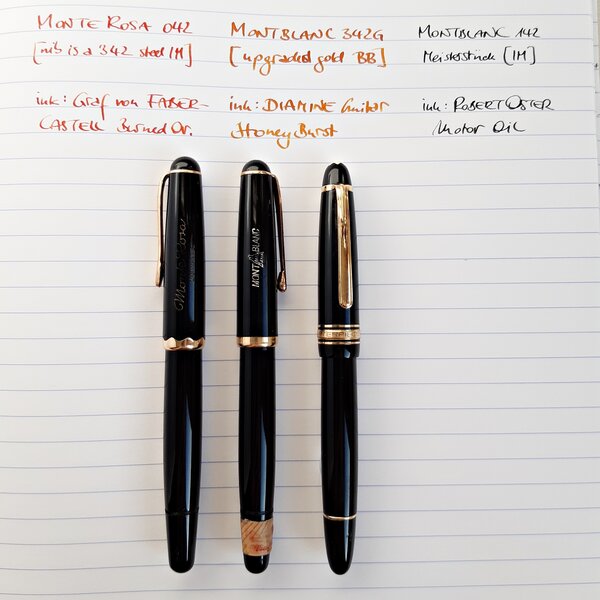 MONTE ROSA 042
[nib is a 342 steel IM]
ink: Graf von FABER-
CASTELL Burned Or.
MONTBLANC 342G
[upgraded gold BB]
ink: DIAMINE Guitar
Honey Burst
MONTBLANC 142
Meisterstück [IM]
ink: ROBERT OSTER
Motor OIL
Monte Rosa
MONTBLANC